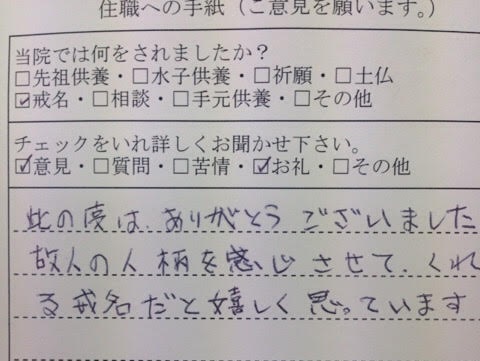 住職への手紙（ご意見を願います。）
当院では何をされましたか？
□先祖供養・□水子供養・□祈願・□土仏
☑戒名・□相談・□手元供養・□その他
チェックをいれ詳しくお聞かせ下さい。
☑意見・□質問・□苦情・☑お礼・□その他
此の度は、ありがとうございました
故人の人柄を感じさせて、くれ
る戒名だと嬉しく思っています